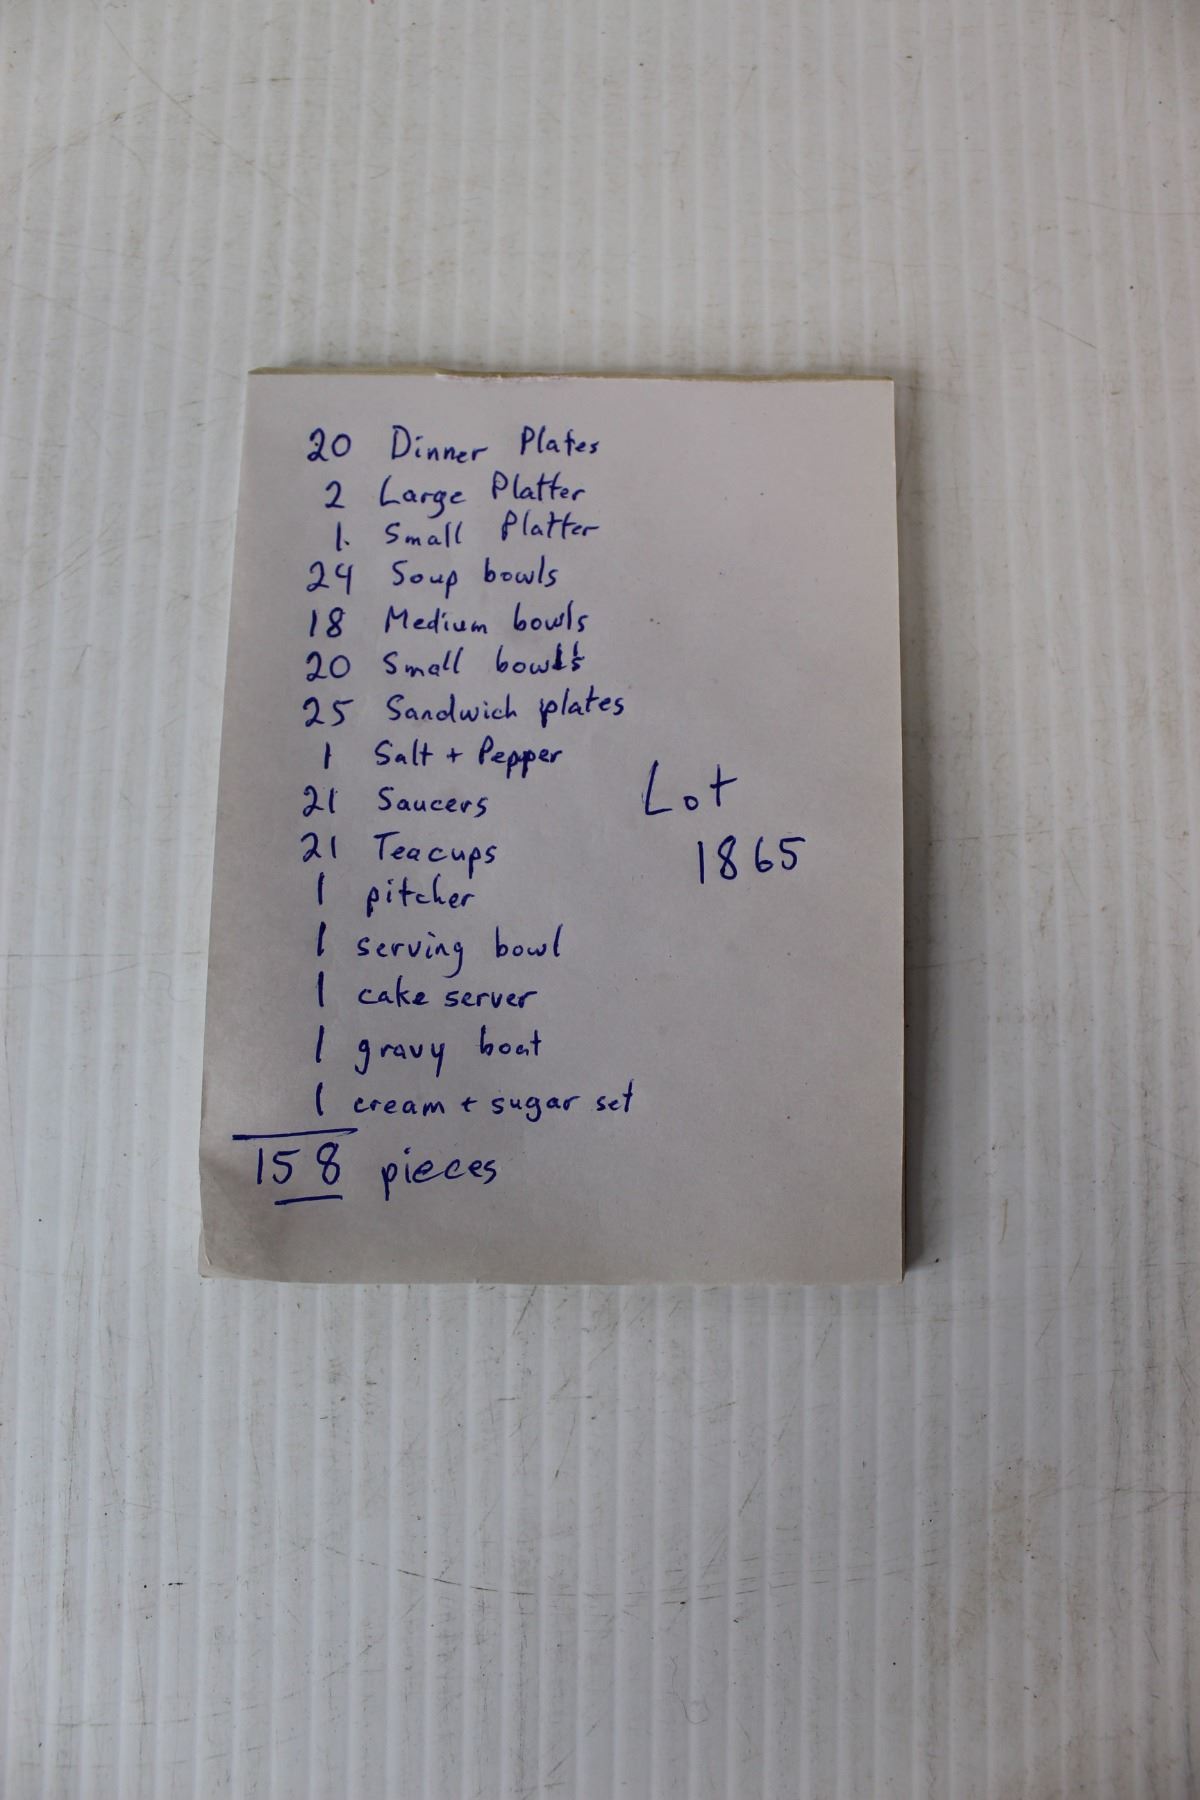 20 Dinner Plates
2 Large Platter
1. Small Platter
24 Soup bowls
18 Medium bowls
20 Small bowls
25 Sandwich plates
1 Salt + Pepper
21 Saucers
21 Teacups
1 pitcher
1 serving bowl
1 cake server
1 gravy boat
1 cream + sugar set
158 pieces
Lot
1865